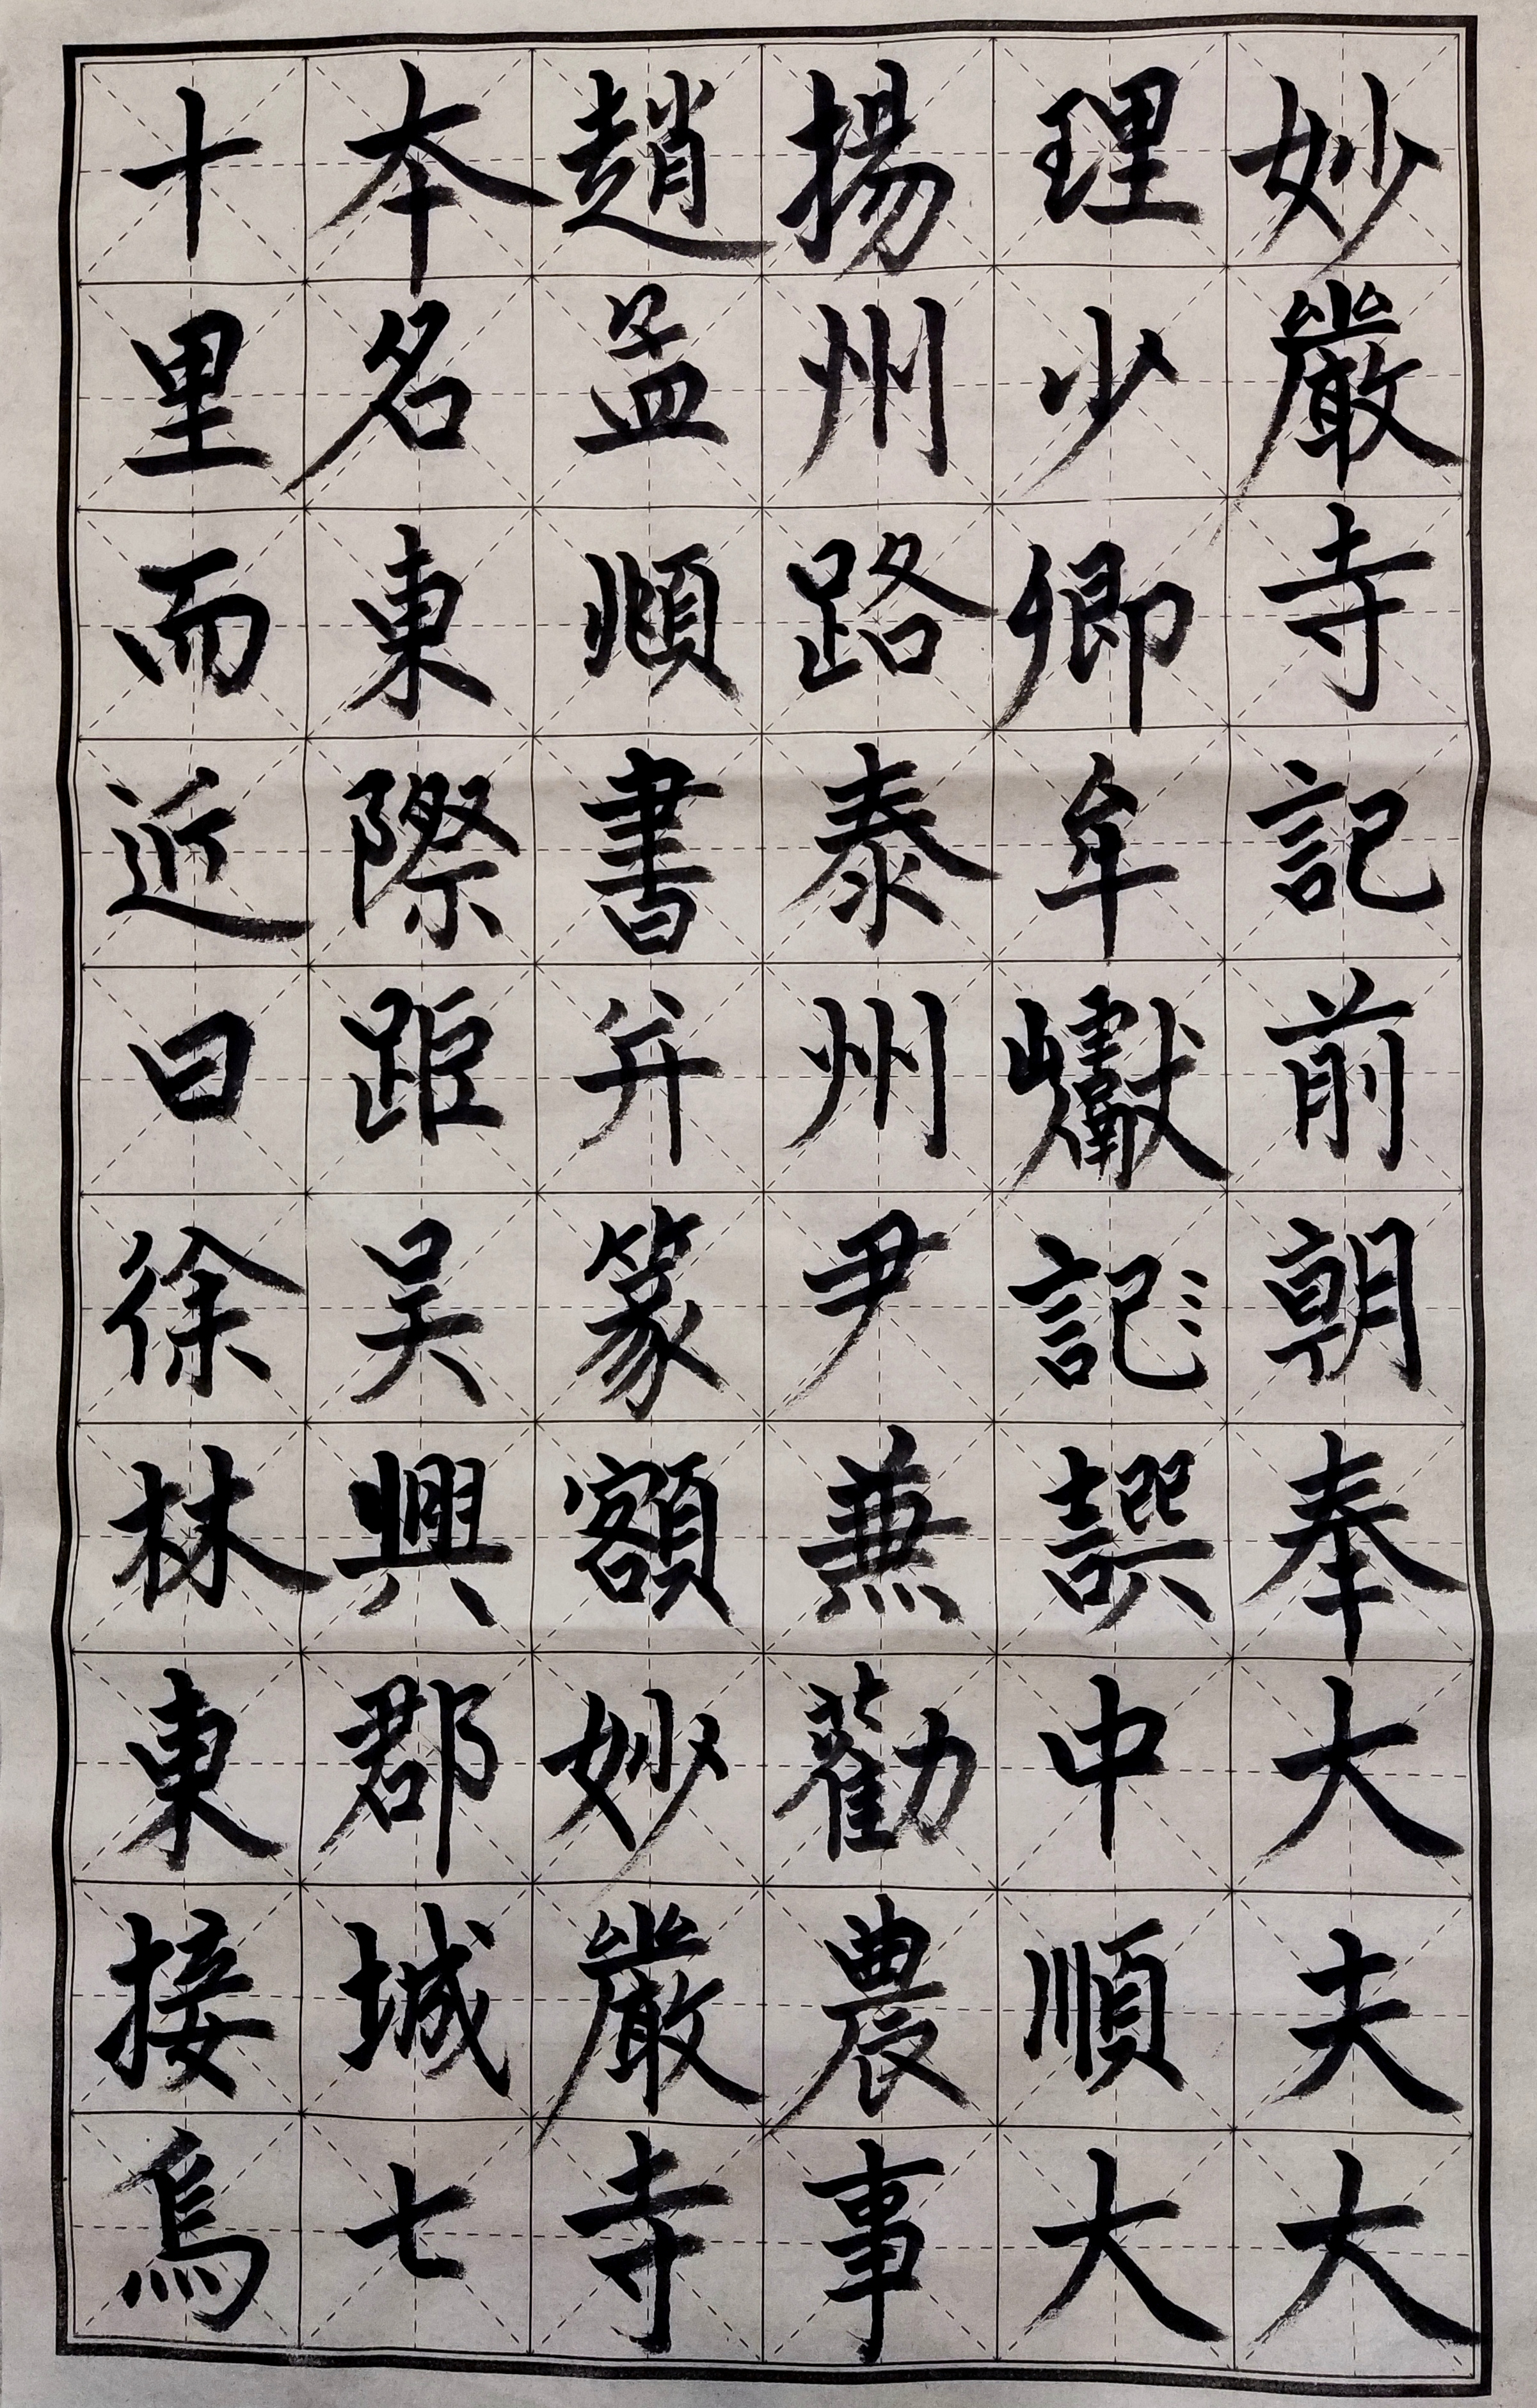 妙嚴寺記前朝奉大夫大
理少卿牟巘記譔中順大
揚州路泰州尹兼勸農事
趙孟頫書并篆額妙嚴寺
本名東際距吴興郡城七
十里而近曰徐林東接烏